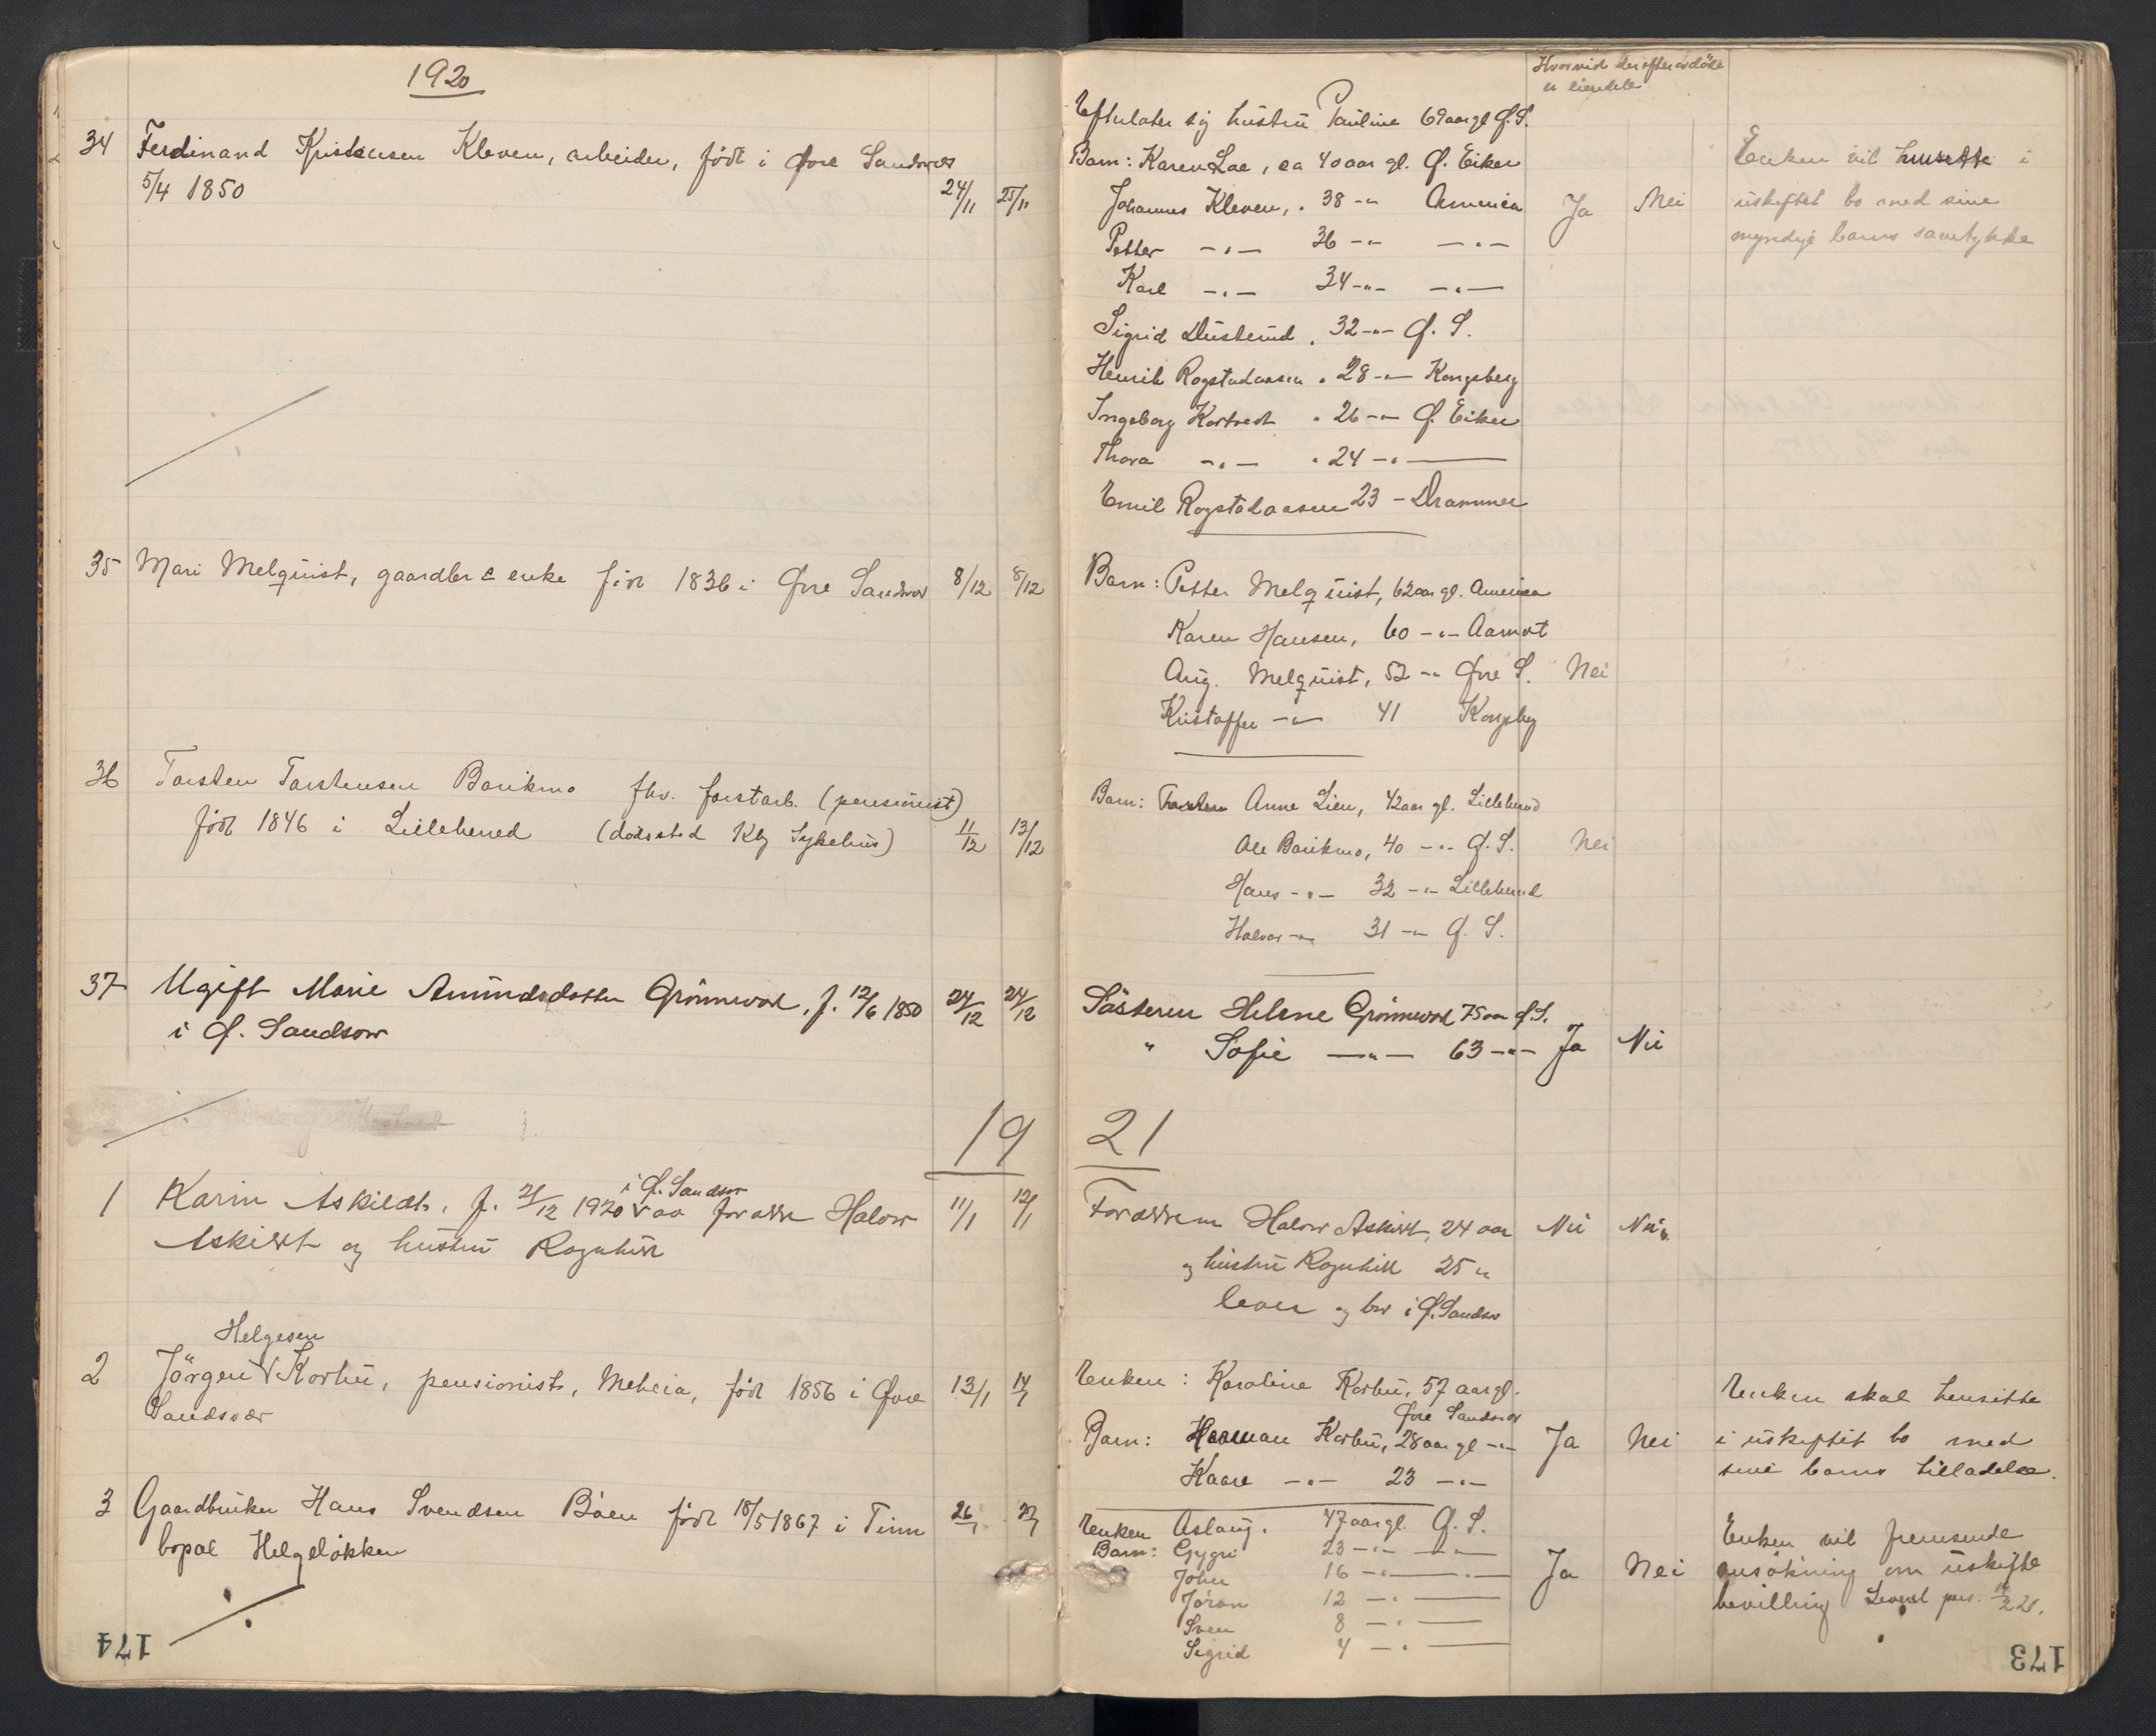 1920
34 Ferdinand Kristensen Kleven, arbeider, född i Øvre Sandsvær
5/4 1850 24/11 25/11
35 Mari Melquist, gaardbr enke född 1836 i Øvre Sandsvær 8/12 8/12
36 Torsten Torstensen Barikmo fhv. forstarb. (pensionist)
född 1846 i Lilleherred (dödssted Kbg Sykehus) 11/12 13/12
37 Ugift Marie Amundsdatter Grönnvold, f. 12/6 1850 24/12 24/12
i Ø. Sandsvær
19
i Ø. Sandsvær
1 Karin Askildt, f. 21/12 1920 av foreldre Halvor 11/1 12/1
Askildt og hustru Ragnhild
Helgesen
2 Jörgen Korbu, pensionist, Meheia, född 1856 i Øvre 13/1 14/1
Sandsvær
3 Gaardbruker Hans Svendsen Böen född 18/5 1867 i Tinn 26/1 27/1
bopæl Helgelökken
174
Hvorvidt der efter avdöde
er eiendele
Efterlater sig hustru Pauline 69 aar gl Ø.S.
Barn: Karen Loe, ca 40 aar gl. Ø. Eiker
Johannes Kleven, . 38 -"- America Ja Nei
Petter -"- 36 -"- -"-
Karl -"- 34 -"- -"-
Sigrid Dusterud . 32 -"- Ø. S.
Henrik Rogstadaasen . 28 -"- Kongsberg
Ingeborg Kortvedt . 26 -"- Ø. Eiker
Thora -"- . 24 -"-
Emil Rogstadaasen 23 - Drammen
Enken vil hensitte i
uskiftet bo med sine
myndige barns samtykke
Barn: Petter Melquist, 62 aar gl. America
Karen Hansen, 60 -"- Aamot
Aug. Melquist, 52 -"- Øvre S. Nei
Kristoffer -"- 41 Kongsbg
Barn: Anne Lien, 42 aar gl. Lilleherred
Ole Barikmo, 40 -"- Ø. S. Nei
Hans -"- 32 -"- Lilleherred
Halvor -"- 31 -"- Ø. S.
Søsteren Helene Grönnvold 75 aar Ø.S.
" Sofie -"- 63 -"- Ja Nei
21
Forældrene Halvor Askildt, 24 aar Nei Nei
og hustru Ragnhild 25 "
lever og bor i Ø. Sandsvær
Enken: Karoline Korbu, 57 aar gl.
Øvre Sandsvær
Barn: Herman Korbu, 28 aar gl -"- Ja Nei
Kaare -"- 23 -"-
Enken skal hensitte
i uskiftet bo med
sine barns tilladelse.
Enken Aslaug. 47 aar gl. Ø. S.
Barn: Gygri 23 -"- -"-
John 16 -"- Ja Nei
Jöran 12 -"-
Sven 8 -"-
Sigrid 4 -"-
Enken vil fremsende
ansökning om uskifte
bevilling
173